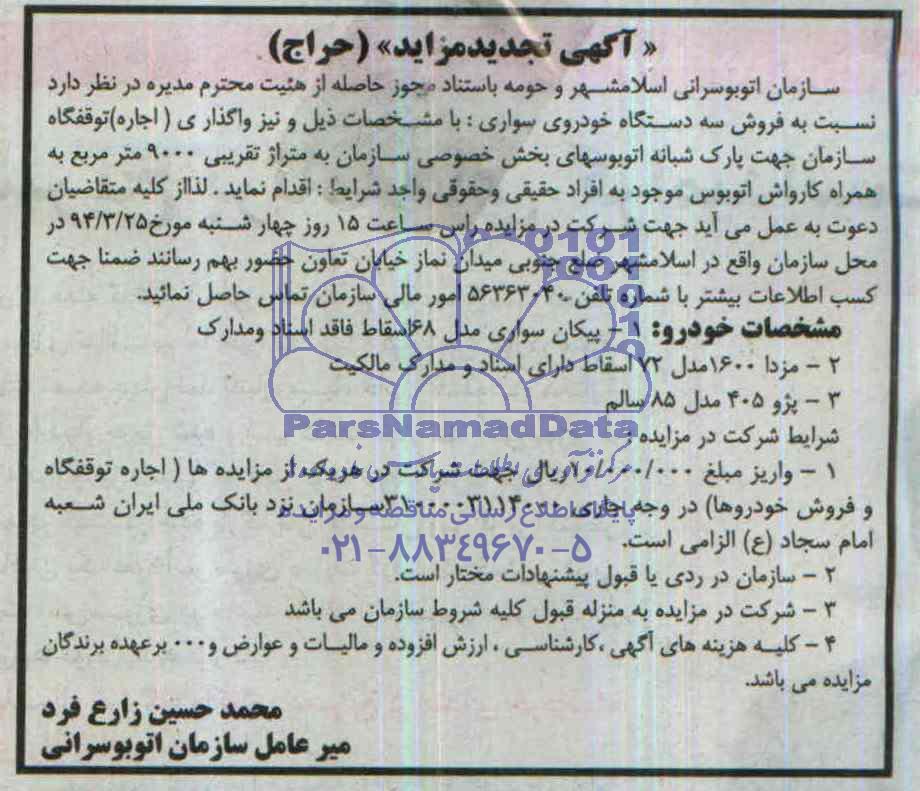 « آگهی تجدیدمزاید» (حراج)
سازمان اتوبوسرانی اسلامشهر و حومه باستناد مجوز حاصله از هئیت محترم مدیره در نظر دارد
نسبت به فروش سه دستگاه خودروی سواری : با مشخصات ذیل و نیز واگذار ی ( اجاره)توقفگاه
سازمان جهت پارک شبانه اتوبوسهای بخش خصوصی سازمان به متراژ تقریبی ۹۰۰۰ متر مربع به
همراه کارواش اتوبوس موجود به افراد حقیقی وحقوقی واجد شرایط : اقدام نماید . لذااز کلیه متقاضیان
دعوت به عمل می آید جهت شرکت در مزایده راس ساعت ۱۵ روز چهار شنبه مورخ۹۴/۳/۲۵ در
محل سازمان واقع در اسلامشهر ضلع جنوبی میدان نماز خیابان تعاون حضور بهم رسانند ضمنا جهت
کسب اطلاعات بیشتر با شماره تلفن ۵۶۳۶۳۰۴۰ امور مالی سازمان تماس حاصل نمائید.
مشخصات خودرو: ۱ – پیکان سواری مدل ۶۸اسقاط فاقد اسناد ومدارک
۲ – مزدا ۱۶۰۰مدل ۷۲ اسقاط دارای اسناد و مدارک مالکیت
۳ – پژو ۴۰۵ مدل ۸۵ سالم
شرایط شرکت در مزایده :
ParsNamadData
۱ – واریز مبلغ ۱۰/۰۰۰/۰۰۰ریال جهت شراکت در هریک از مزایده ها ( اجاره توقفگاه
و فروش خودروها) در وجه جاری سازمان نزد بانک ملی ایران شعبه
پایگاه اطلاع رسانی مناقصه و مزایده
امام سجاد (ع) الزامی است.
۰۲۱-۸۸۳۴۹۶۷۰-۵
۲ – سازمان در ردی یا قبول پیشنهادات مختار است.
۳ – شرکت در مزایده به منزله قبول کلیه شروط سازمان می باشد
۴ – کلیه هزینه های آگهی ،کارشناسی ، ارزش افزوده و مالیات و عوارض و۰۰۰ برعهده برندگان
مزایده می باشد.
محمد حسین زارع فرد
میر عامل سازمان اتوبوسرانی